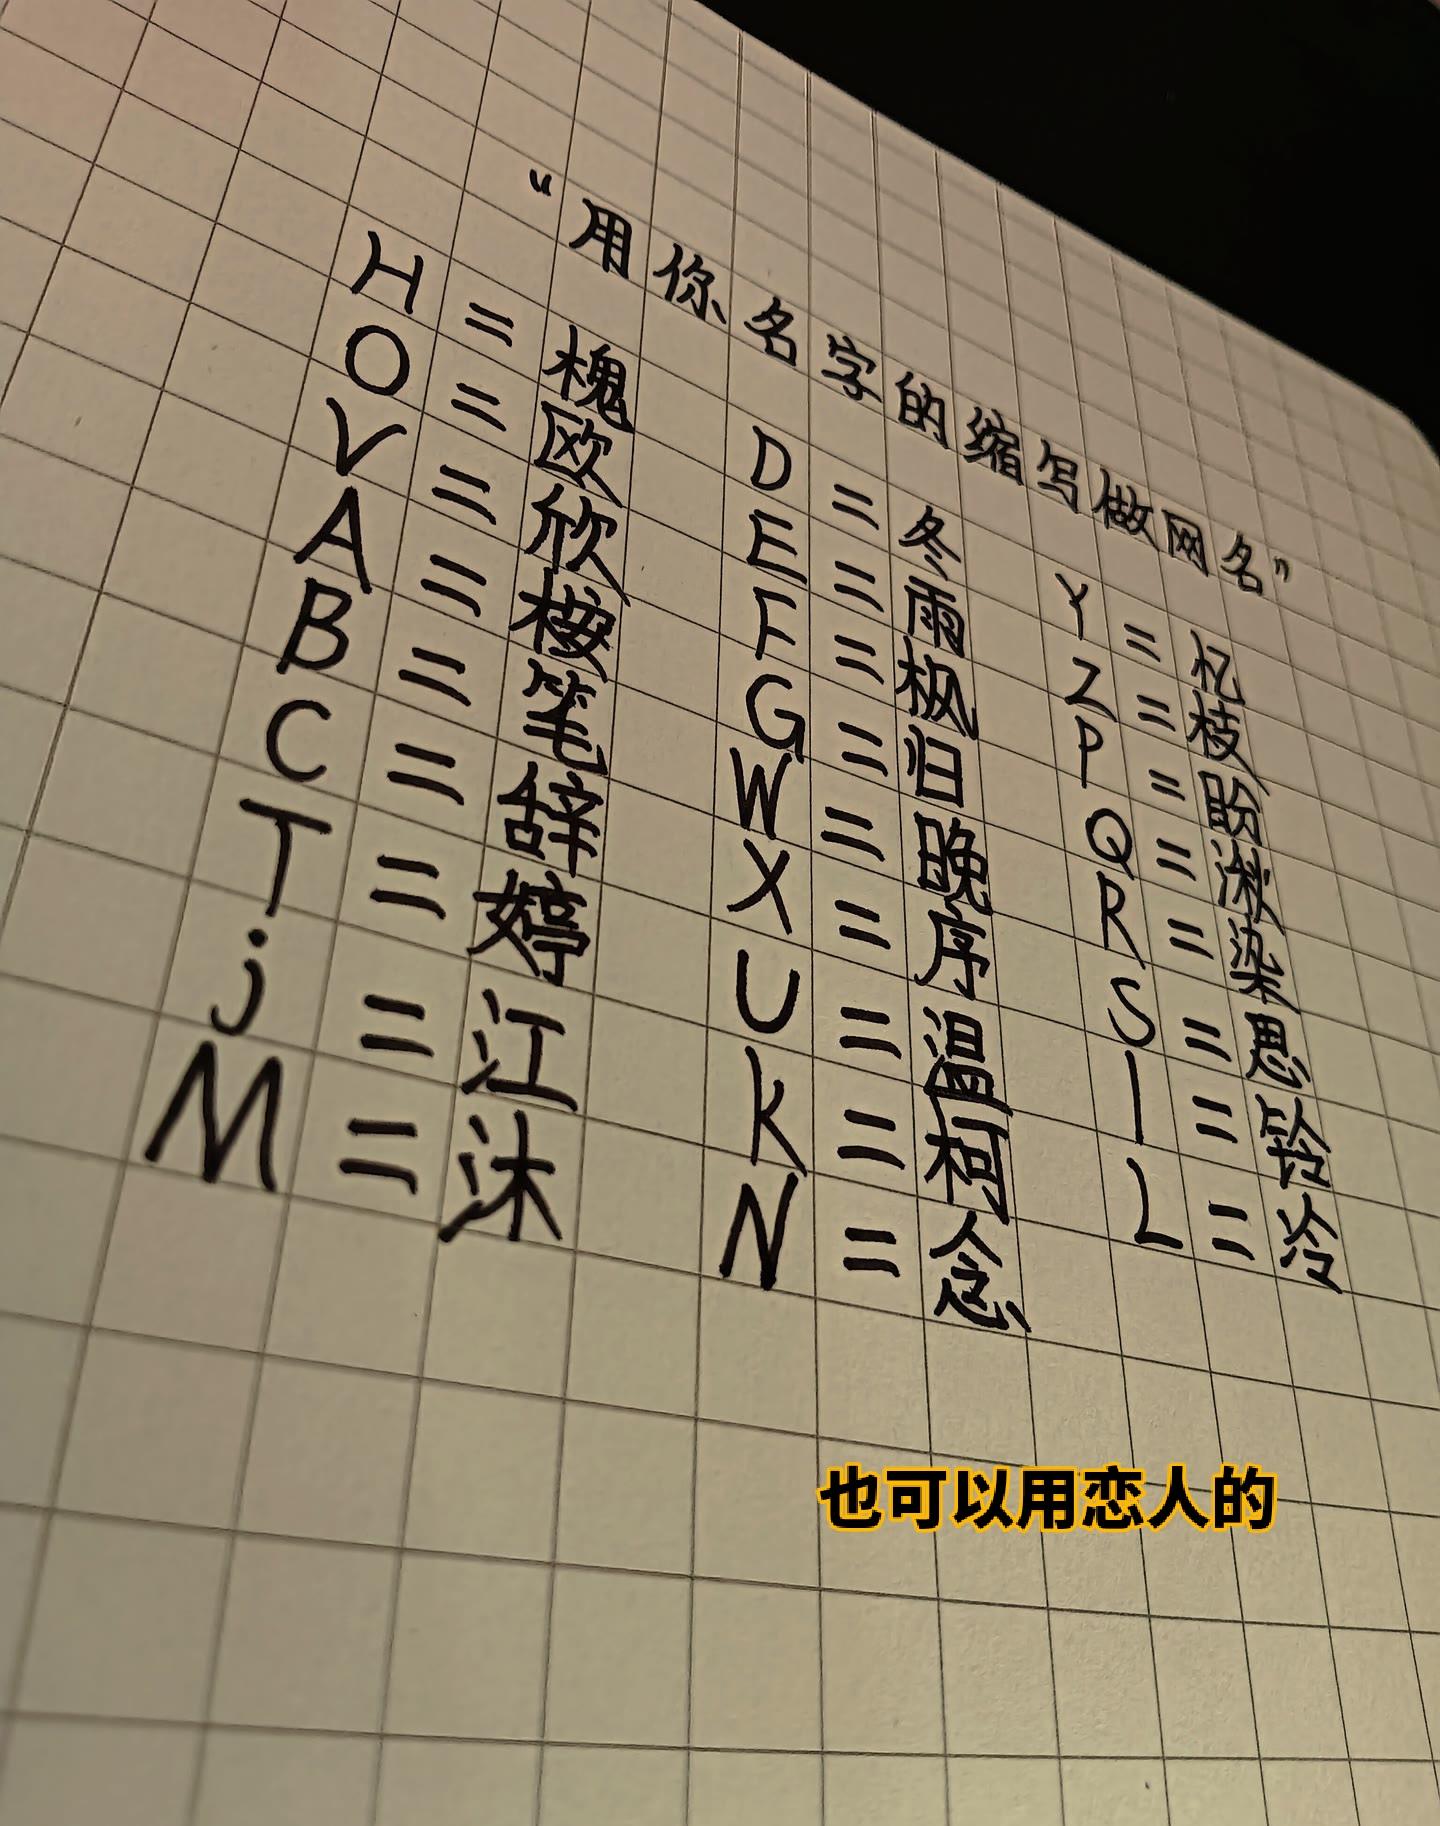 “用你名字的缩写做网名”
H=槐
O=欧
V=欣
A=桉
B=笔
C=辞
T=婷
j=江
M=沐
D=冬
E=雨
F=枫
G=归
W=晚
X=序
U=温
K=柯
N=念
Y=忆
Z=枝
P=盼
Q=湫
R=染
S=思
I=铃
L=冷
也可以用恋人的